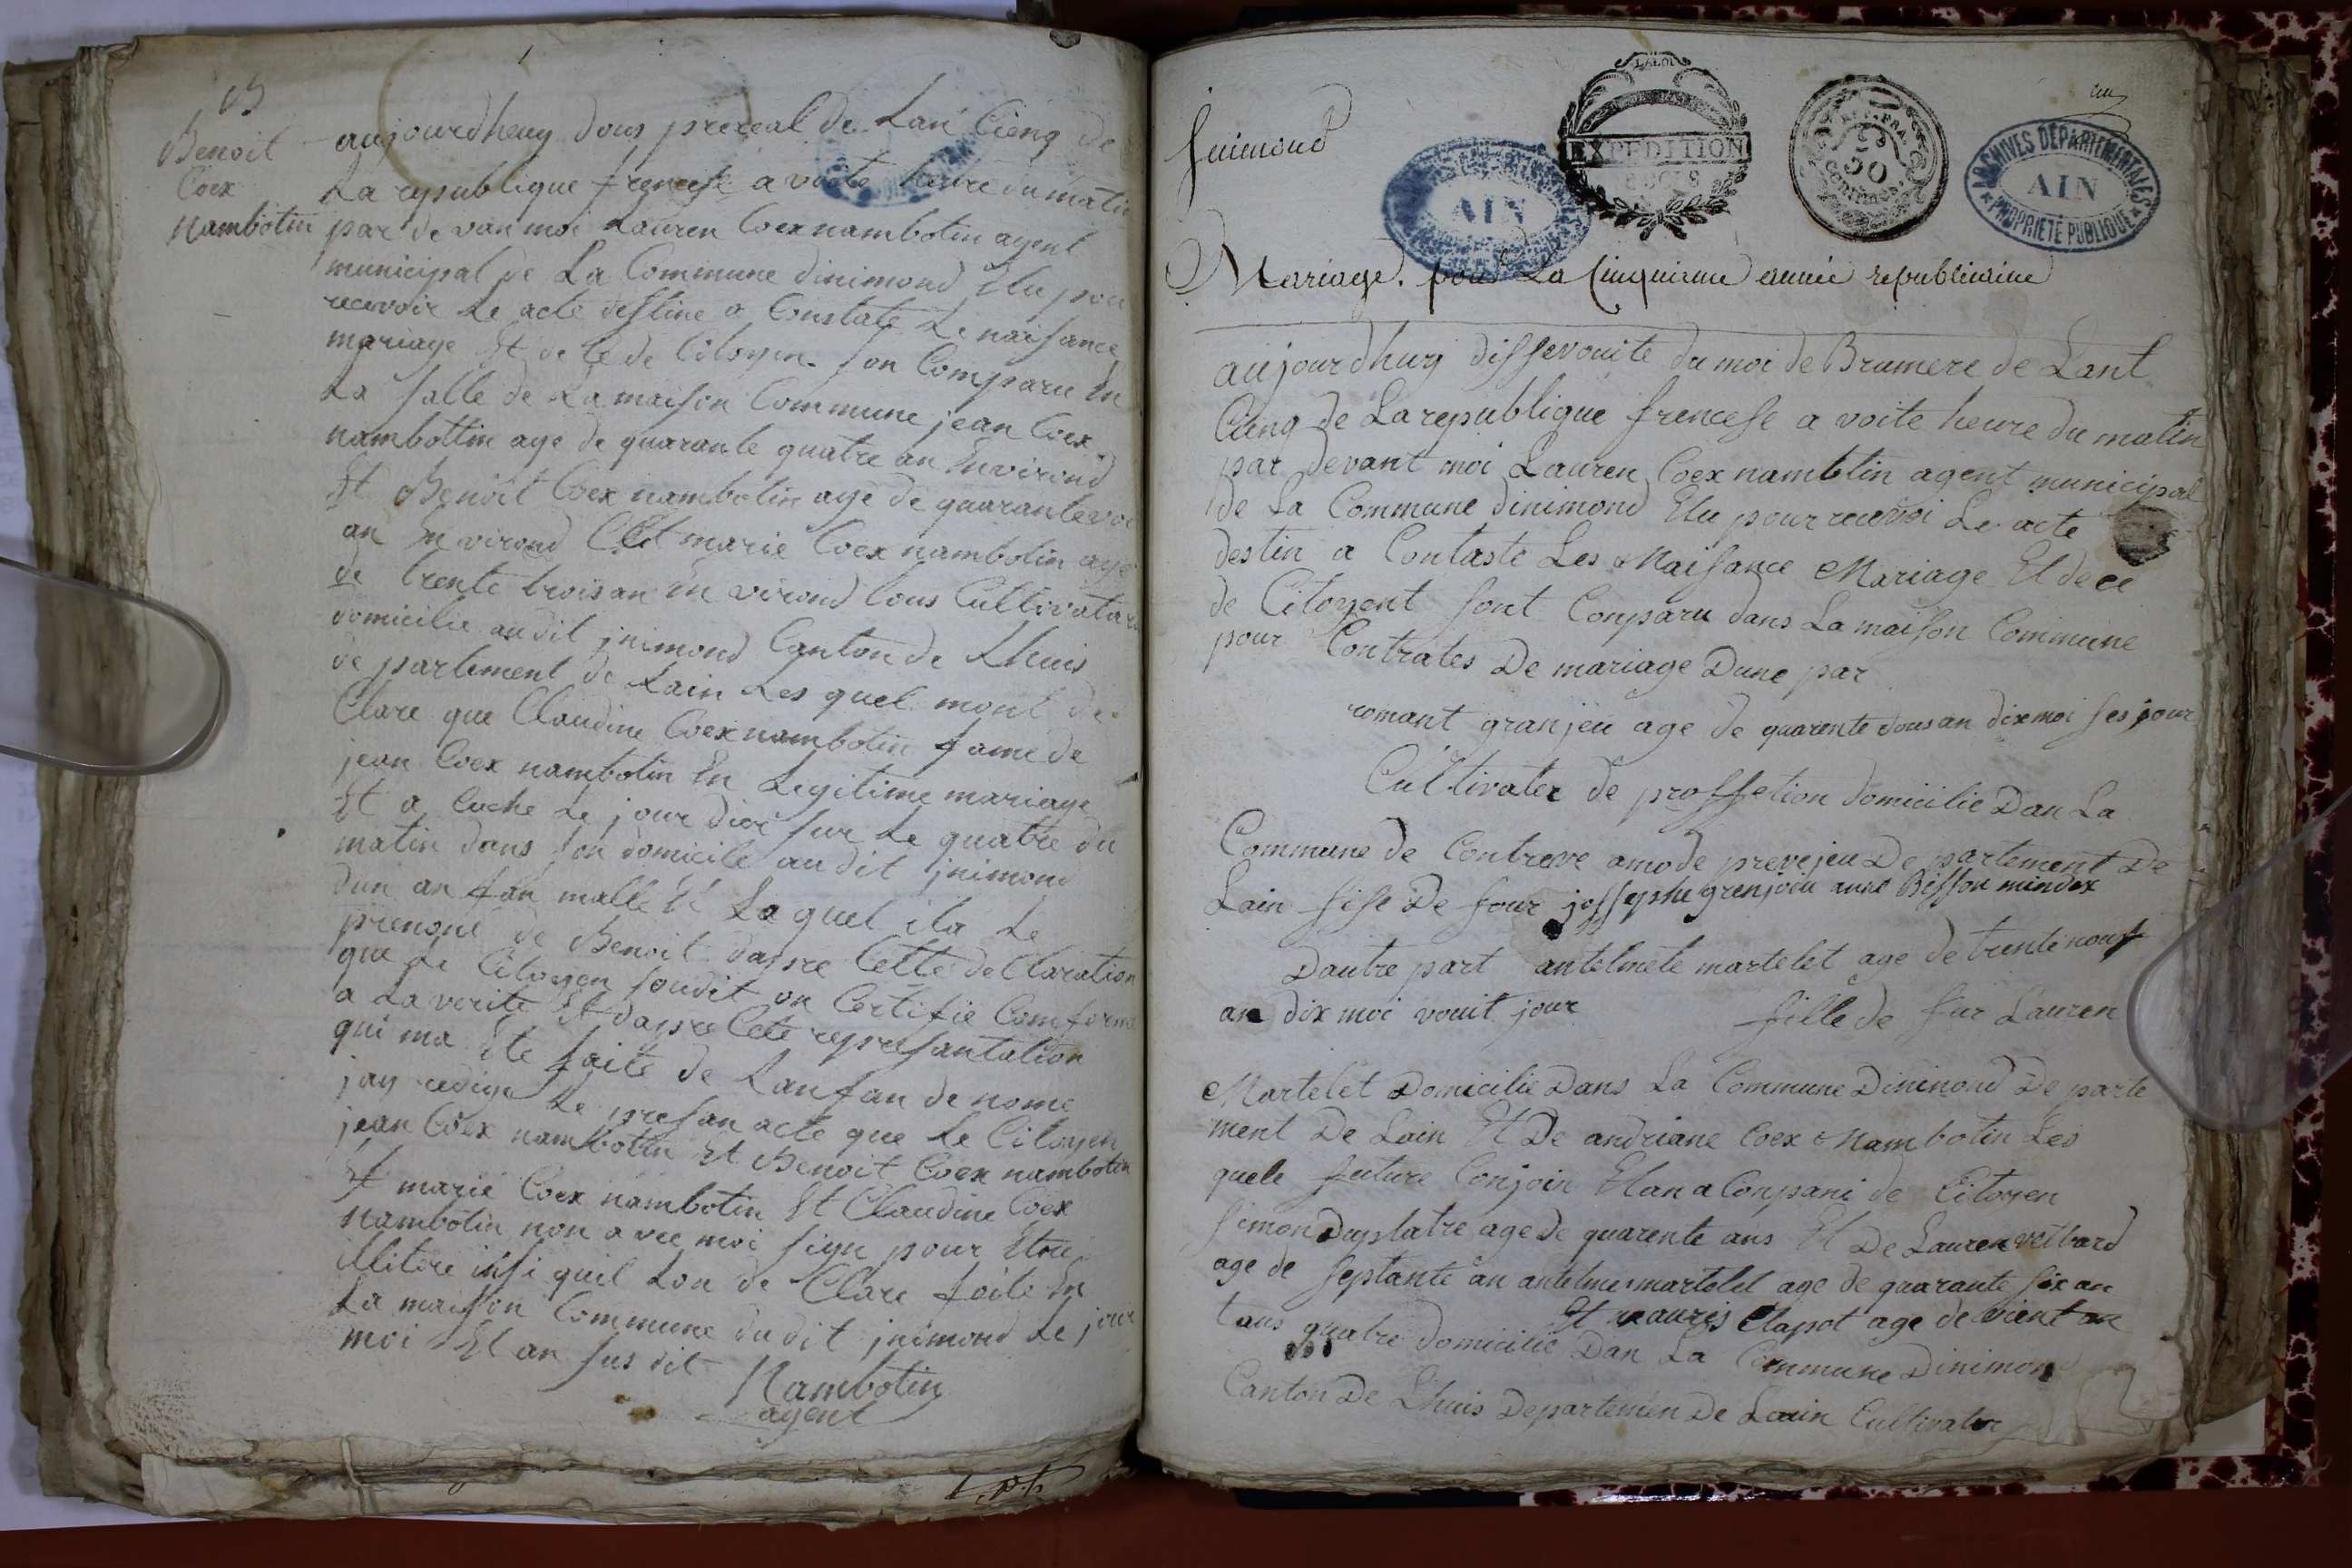 Benoit
Coex
Nambotin
aujourdheuy dous prereal de Lan Cienq de
La republique frencese a voite heure du matin
par de van moi Lauren Coex nambotin agent
municipal de La Commune dinimond Elu pou
recevoir Le acte destine a Constate Le naisance
mariage Et de Ce de Citoyen son Comparu En
La salle de La maison Commune jean Coex
nambottin age de quarante quatre an Environd
Et Benoit Coex nambotin age de quarante voi
an En virond Et marie Coex nambotin age
de trente trois an En virond tous Cultivater
domicilie au dit jnimond Canton de Lhuis
de partement de Lain Les quel mont de
Clare que Claudine Coex nambotin fame de
jean Coex nambotin En Legitime mariage
Et a Cuche Le jour dier sur Le quatre du
matin dans son domicile au dit jnimond
dun an fan malle Et La quel ila Le
prenome de Benoit dapre Cette deClaration
que Le Citoyen soudit on Certifie Comforme
a La verite Et dapre Cete represantation
qui ma Ete faite de Lanfan de nome
jay redige Le presan acte que Le Citoyen
jean Coex nambotin Et Benoit Coex nambotin
Et marie Coex nambotin Et Claudine Coex
Nambotin non a vec moi sign pour Etre
illitere insi quil Lon de Clare foite En
La maison Commune du dit jnimond Le jour
moi Et an sus dit
Nambotin
agent
jnimond
LA LOI
EXPEDITION
REP. FRA.
50
CENTIMES
ARCHIVES DÉPARTEMENTALES
AIN
PROPRIÉTÉ PUBLIQUE
AIN
Mariage. pour La Cinquieme année republicaine
aujourdhuy dissevouite du moi de Brumere de Lant
Cienq de La republique frencese a voite heure du matin
par devant moi Lauren Coex namblin agent municipal
de La Commune dinimond Elu pour recevoi Le acte
destin a Contaste Les Naisance Mariage Et dece
de Citoyent sont Conparu dans La maison Commune
pour Contrates De mariage Dune par
romant granjeu age de quarente dous an dixmoi ses jour
Cultivater de proffetion domicilie Dan La
Commune de Contreve amode prevejeu De partement De
Lain fise De four jossephe grenjeu anne Bisson mindex
Dautre part antelmete martelet age de trente nouf
an dix moi vouit jour fille de fur Lauren
Martelet Domicilie Dans La Commune Dininond De parte
ment De Lain Et De andriane Coex Nambotin Les
quele future Conjoin Etan a Conpani de Citoyen
simon Duplatre age de quarente ans Et De Lauren veibard
age de septante an antelme martelet age de quarante six an
Et mauris Clapot age de vient an
tans quatre domicilie Dan La Commune Dinimon
Canton De Lhuis Departemen De Lain Cultivater